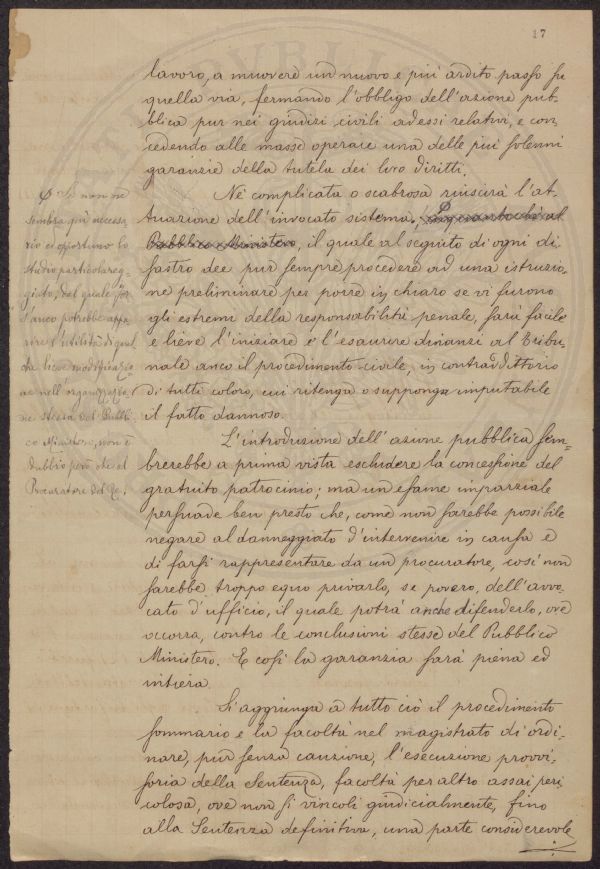 17
lavoro, a muovere un nuovo e più ardito passo su
quella via, fermando l'obbligo dell'azione pub-
blica pur nei giudizi civili ad essi relativi, e con
cedendo alle masse operaie una delle più solenni
garanzie della tutela dei loro diritti.
Nè complicata o scabrosa riuscirà l'at-
tuazione dell'invocato sistema, Inquantochè al
Pubblico Ministero, il quale al seguito di ogni di-
sastro dee pur sempre procedere ad una istruzio-
ne preliminare per porre in chiaro se vi furono
gli estremi della responsabilità penale, sarà facile
e lieve l'iniziare e l'esaurire dinanzi al Tribu-
nale anco il procedimento civile, in contraddittorio
di tutti coloro, cui ritenga o supponga imputabile
il fatto dannoso.
L'introduzione dell'azione pubblica sem-
brerebbe a prima vista escludere la concessione del
gratuito patrocinio; ma un esame imparziale
persuade ben presto che, come non sarebbe possibile
negare al danneggiato d'intervenire in causa e
di farsi rappresentare da un procuratore, così non
sarebbe troppo equo privarlo, se povero, dell'avvo-
cato d'ufficio, il quale potrà anche difenderlo, ove
occorra, contro le conclusioni stesse del Pubblico
Ministero. E così la garanzia sarà piena ed
intiera.
Si aggiunga a tutto ciò il procedimento
sommario e la facoltà nel magistrato di ordi-
nare, pur senza cauzione, l'esecuzione provvi-
soria della Sentenza, facoltà per altro assai peri
colosa, ove non si vincoli giudicialmente, fino
alla Sentenza definitiva, una parte considerevole
Se non ne
sembra qui necessa
rio ed opportuno lo
studio particolareg-
giato, dal quale
l'anco potrebbe appa
rire l'utilità di qual
che lieve modificazio-
ne nell'organizzazio-
ne stessa del Pubbli
co Ministero, non è
dubbio però che al
Procuratore del Re,